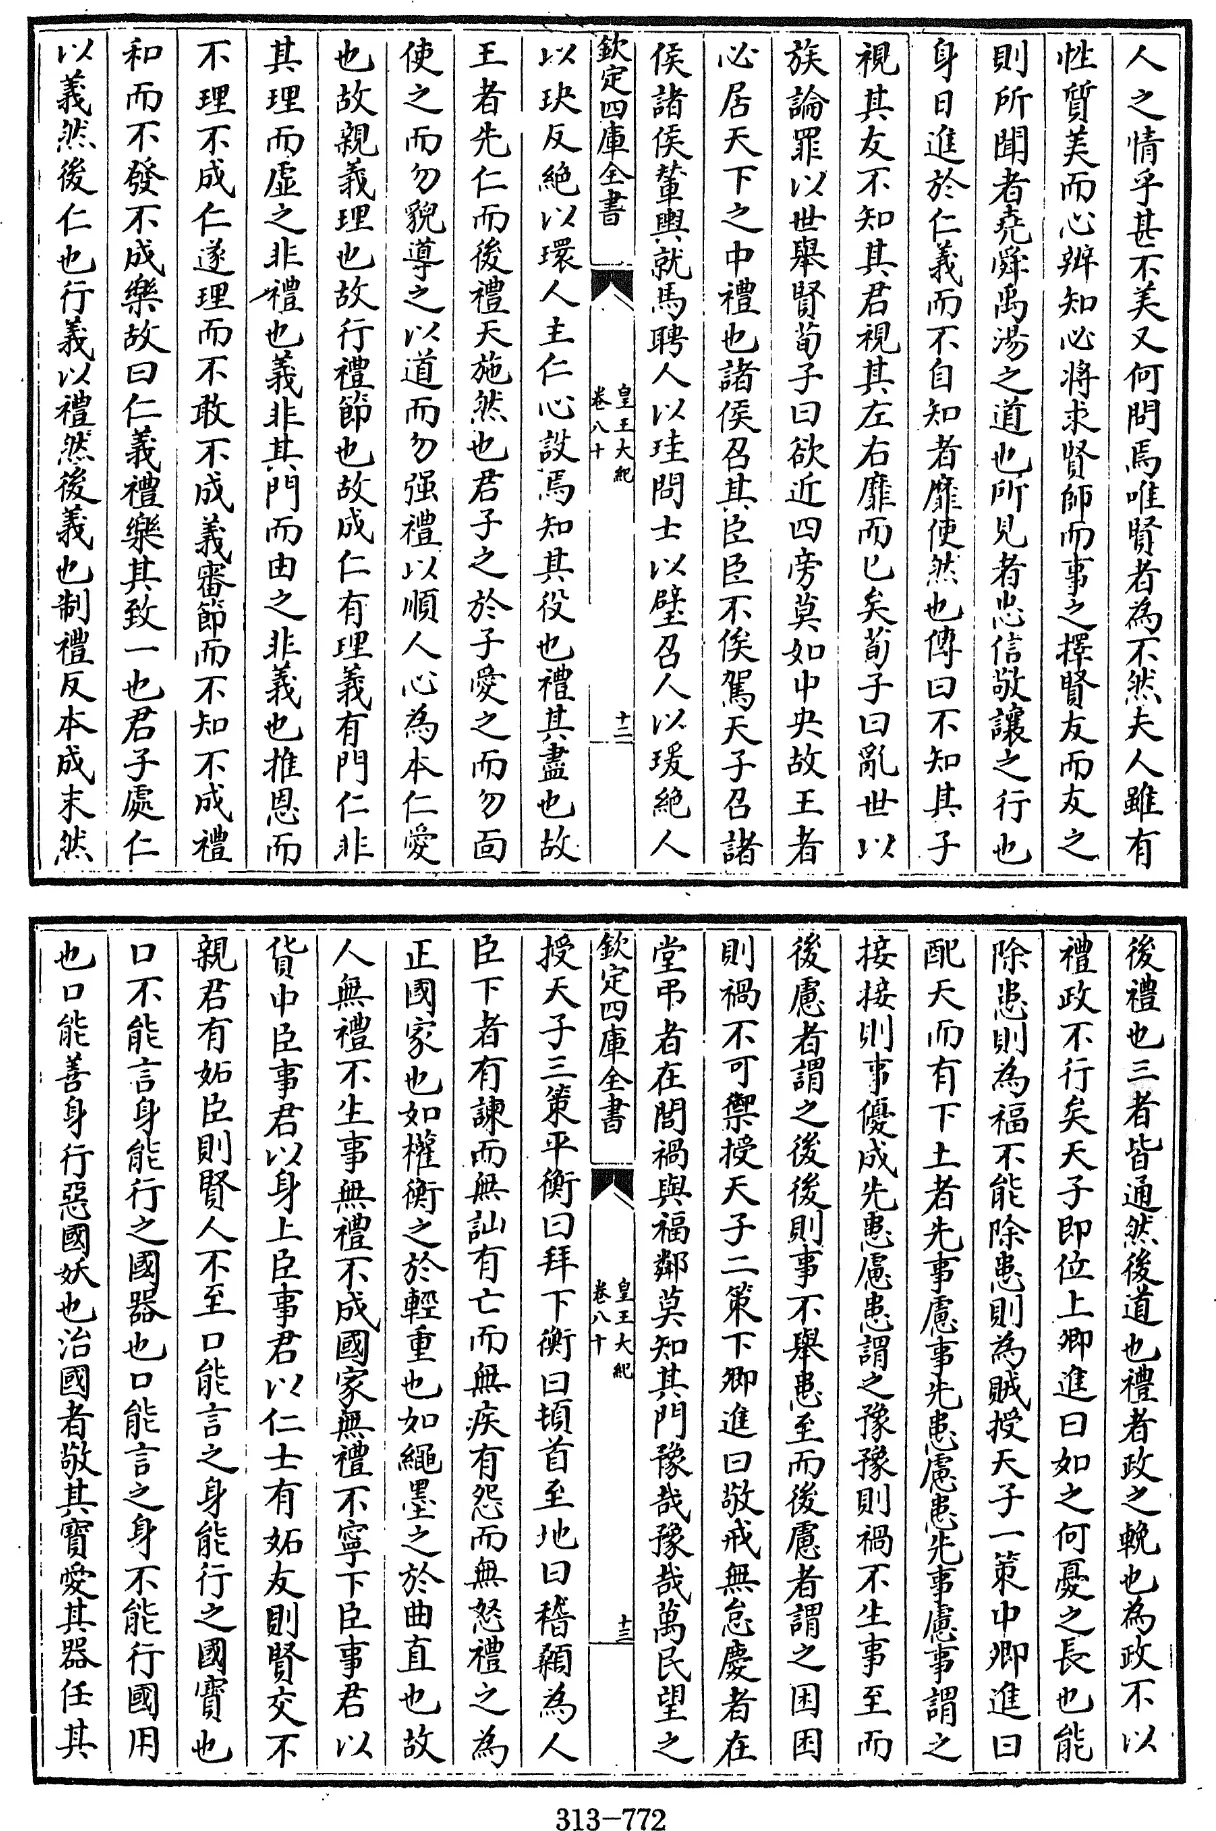 人之情乎甚不美又何問焉唯賢者為不然夫人雖有
性質美而心辨知必將求賢師而事之擇賢友而友之
則所聞者堯舜禹湯之道也所見者忠信敬讓之行也
身日進於仁義而不自知者靡使然也傳曰不知其子
視其友不知其君視其左右靡而已矣荀子曰亂世以
族論罪以世舉賢荀子曰欲近四旁莫如中央故王者
必居天下之中禮也諸侯召其臣臣不俟駕天子召諸
侯諸侯輦輿就馬聘人以珪問士以璧召人以瑗絶人
欽定四庫全書
皇王大紀
卷八十
十二
以玦反絶以環人主仁心設焉知其役也禮其盡也故
王者先仁而後禮天施然也君子之於子愛之而勿面
使之而勿貌導之以道而勿强禮以順人心為本仁愛
也故親義理也故行禮節也故成仁有理義有門仁非
其理而虛之非禮也義非其門而由之非義也推恩而
不理不成仁遂理而不敢不成義審節而不知不成禮
和而不發不成樂故曰仁義禮樂其致一也君子處仁
以義然後仁也行義以禮然後義也制禮反本成末然
後禮也三者皆通然後道也禮者政之輓也為政不以
禮政不行矣天子即位上卿進曰如之何憂之長也能
除患則為福不能除患則為賊授天子一策中卿進曰
配天而有下土者先事慮事先患慮患先事慮事謂之
接接則事優成先患慮患謂之豫豫則禍不生事至而
後慮者謂之後後則事不舉患至而後慮者謂之困困
則禍不可禦授天子二策下卿進曰敬戒無怠慶者在
堂弔者在閭禍與福鄰莫知其門豫哉豫哉萬民望之
欽定四庫全書
皇王大紀
卷八十
十三
授天子三策平衡曰拜下衡曰頓首至地曰稽顙為人
臣下者有諫而無訕有亡而無疾有怨而無怒禮之為
正國家也如權衡之於輕重也如繩墨之於曲直也故
人無禮不生事無禮不成國家無禮不寧下臣事君以
貨中臣事君以身上臣事君以仁士有妬友則賢交不
親君有妬臣則賢人不至口能言之身能行之國寶也
口不能言身能行之國器也口能言之身不能行國用
也口能善身行惡國妖也治國者敬其寶愛其器任其
313-772